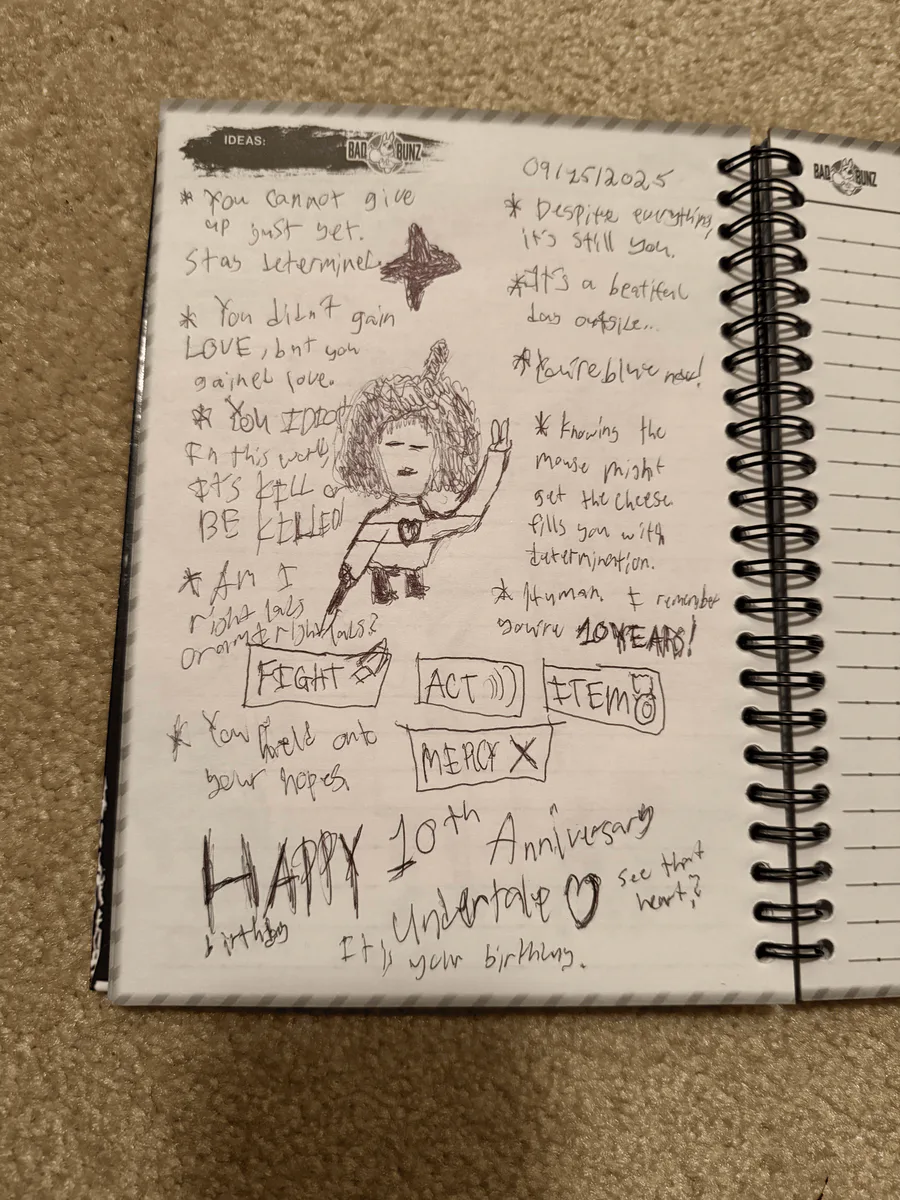 IDEAS:
BAD BUNZ
* You cannot give
up just yet.
Stay determined.
* You didn't gain
LOVE, but you
gained love.
* You IDIOT
In this world
It's KILL or
BE KILLED
* Am I
right lads
or am I right lads?
09/15/2025
* Despite everything,
it's still you.
* It's a beatiful
day outside...
* You're blue now!
* Knowing the
mouse might
get the cheese
fills you with
determination.
* Human. I remember
you're 10 YEARS!
FIGHT
ACT
ITEM
MERCY X
* You held onto
your hopes.
HAPPY 10th Anniversary
birthday
Undertale
see that
heart?
It's your birthday.
BAD BUNZ